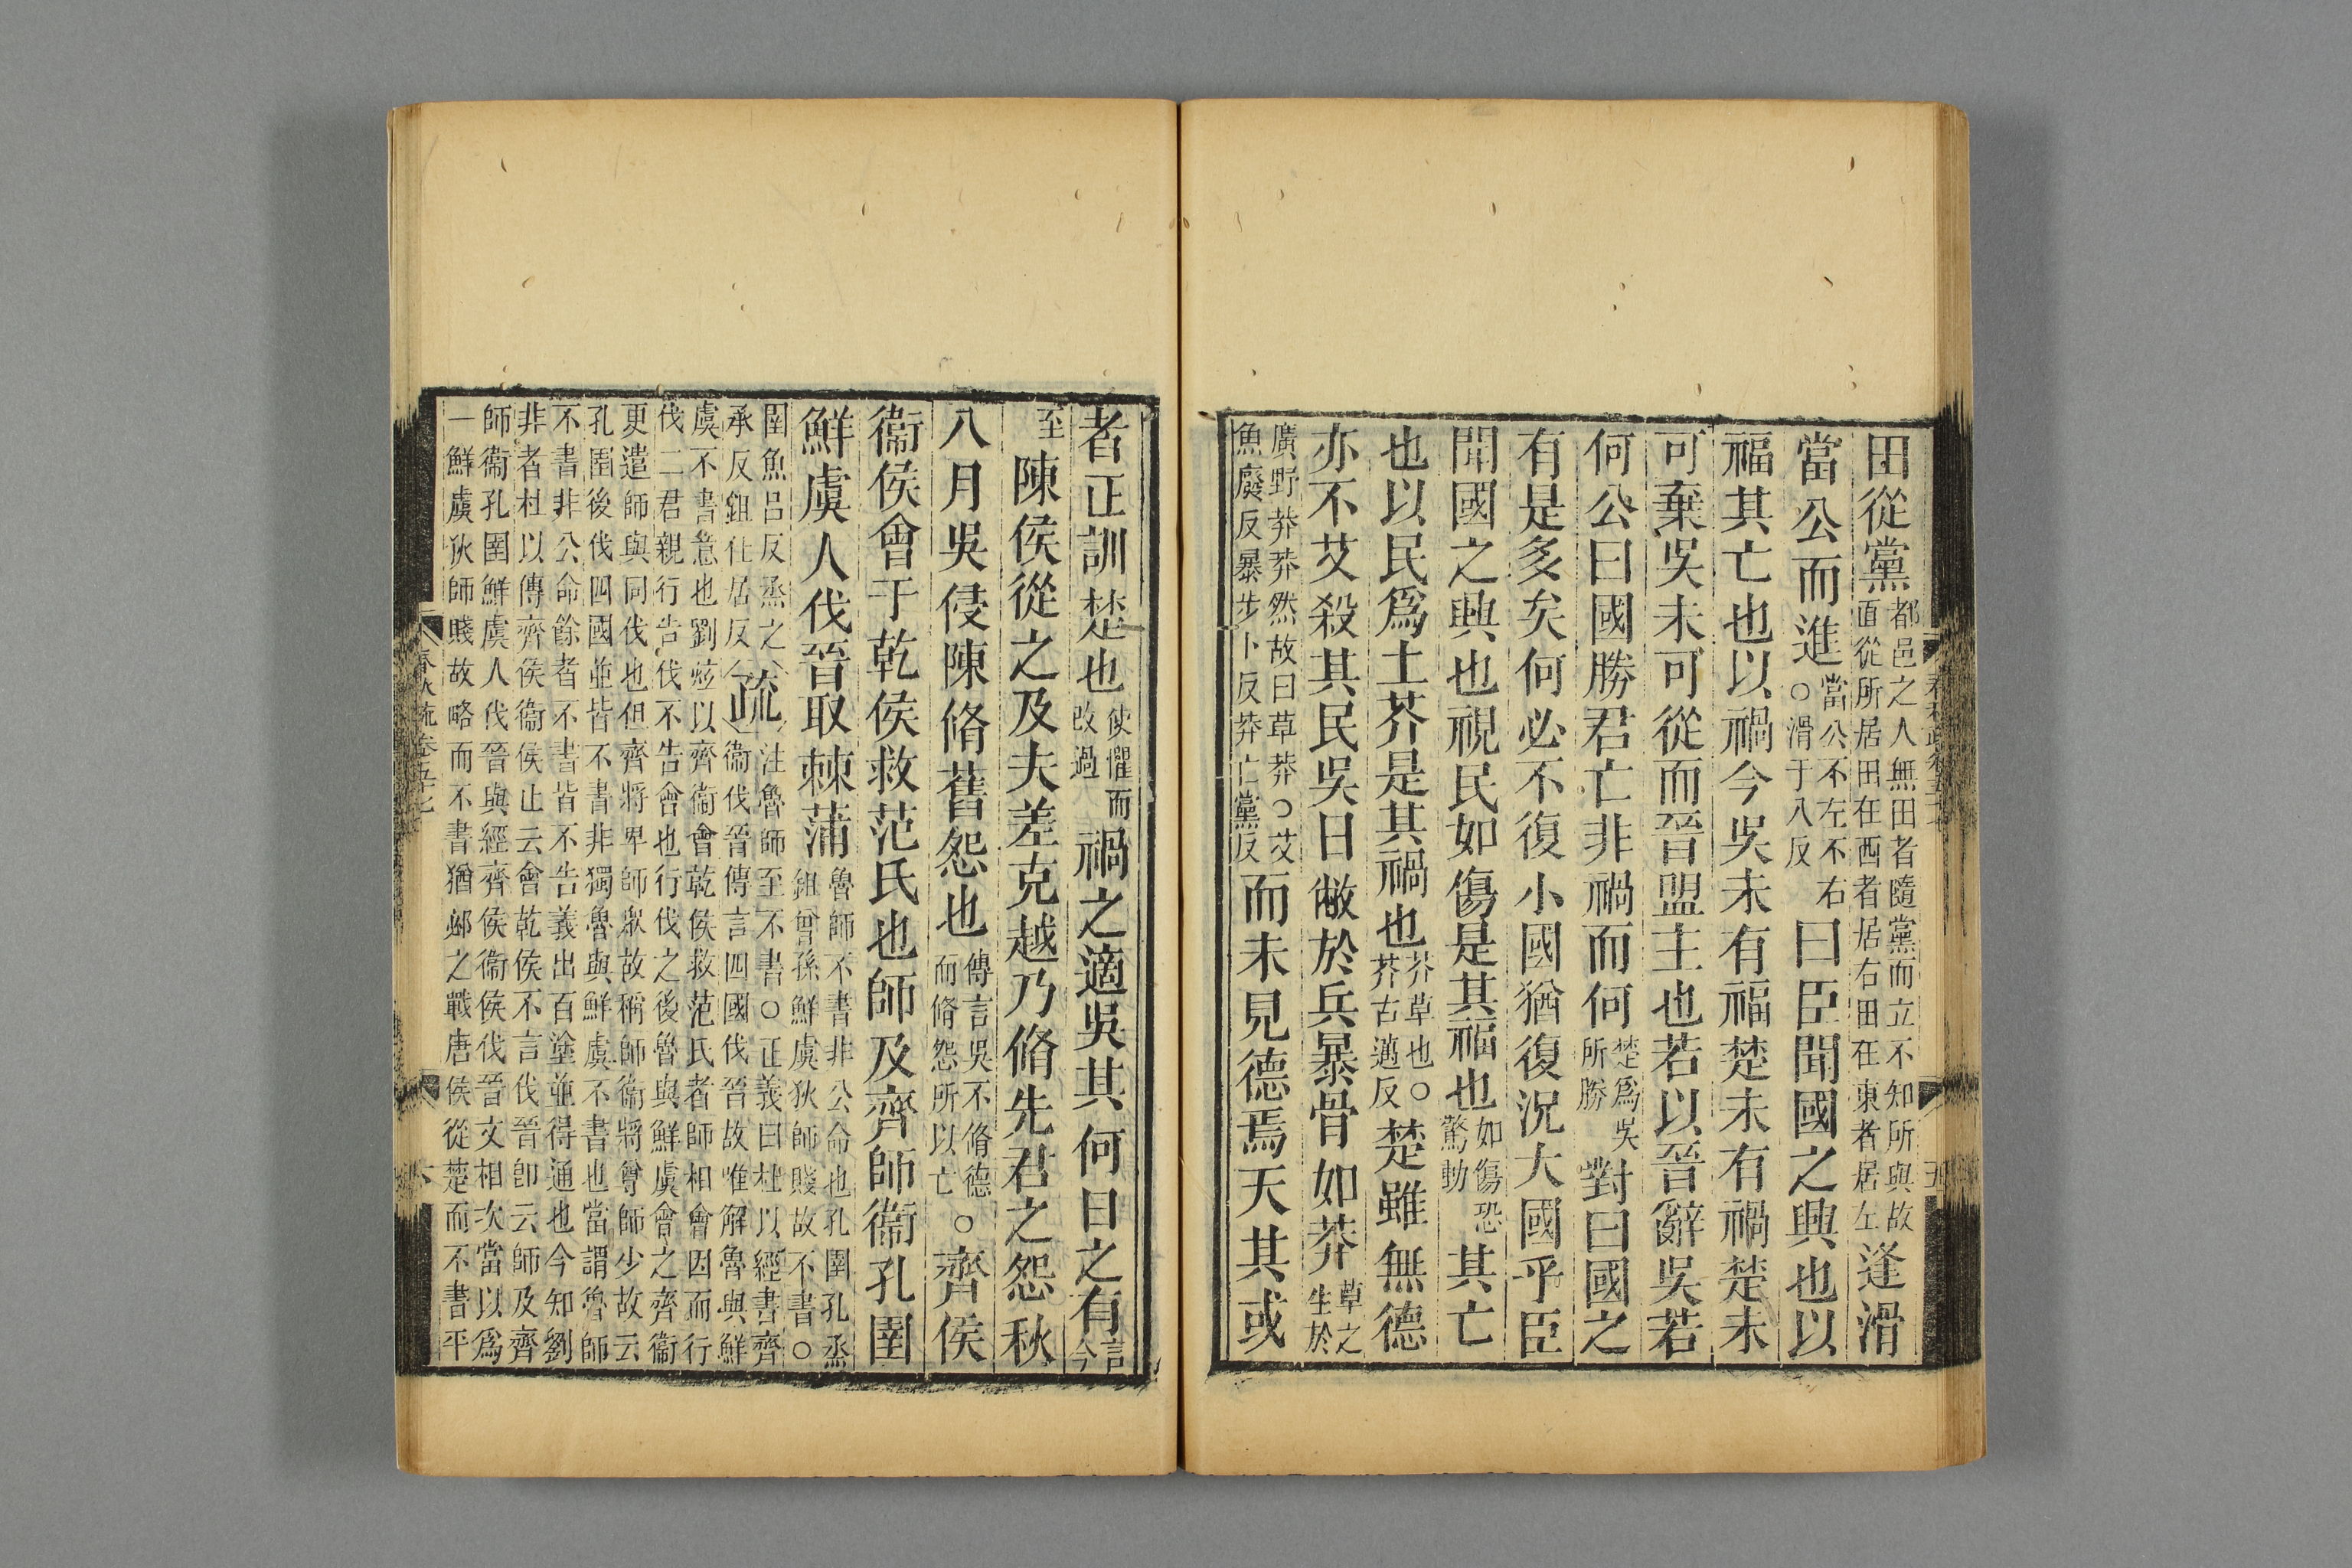 田從黨都邑之人無田者隨黨而立不知所與故直從所居田在西者居右田在東者居左逢滑
當公而進當公不左不右○滑于八反曰臣聞國之興也以
福其亡也以禍今吳未有福楚未有禍楚未
可棄吳未可從而晉盟主也若以晉辭吳若
何公曰國勝君亡非禍而何楚爲吳所勝對曰國之
有是多矣何必不復小國猶復況大國乎臣
聞國之興也視民如傷是其福也如傷恐驚動其亡
也以民爲土芥是其禍也芥草也○芥古邁反楚雖無德
亦不艾殺其民吳日敝於兵暴骨如莽草之生於
廣野莽莽然故曰草莽○艾魚廢反暴步卜反莽亡黨反而未見德焉天其或
者正訓楚也使懼而改過禍之適吳其何日之有言今
至陳侯從之及夫差克越乃脩先君之怨秋
八月吳侵陳脩舊怨也傳言吳不脩德而脩怨所以亡○齊侯
衞侯會于乾侯救范氏也師及齊師衞孔圉
鮮虞人伐晉取棘蒲魯師不書非公命也孔圉孔烝鉏曾孫鮮虞狄師賤故不書○
圉魚呂反烝之承反鉏仕居反疏注魯師至不書○正義曰杜以經書齊衞伐晉傳言四國伐晉故唯解魯與鮮
虞不書意也劉炫以齊衞會乾侯救范氏者師相會因而行伐二君親行告伐不告會也行伐之後魯與鮮虞會之齊衞
更遣師與同伐也但齊將卑師眾故稱師衞將尊師少故云孔圉後伐四國並皆不書非獨魯與鮮虞不書也當謂魯師
不書非公命餘者不書皆不告義出百塗並得通也今知劉非者杜以傳齊侯衞侯止云會乾侯不言伐晉卽云師及齊
師衞孔圉鮮虞人伐晉與經齊侯衞侯伐晉文相次當以爲一鮮虞狄師賤故略而不書猶邲之戰唐侯從楚而不書平